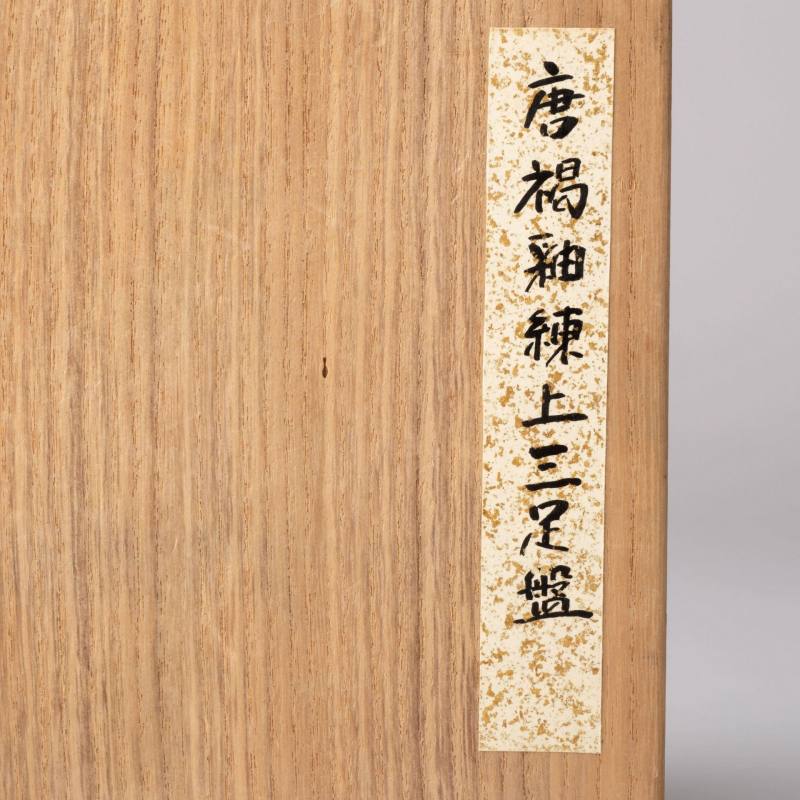 唐褐釉練上三足盤